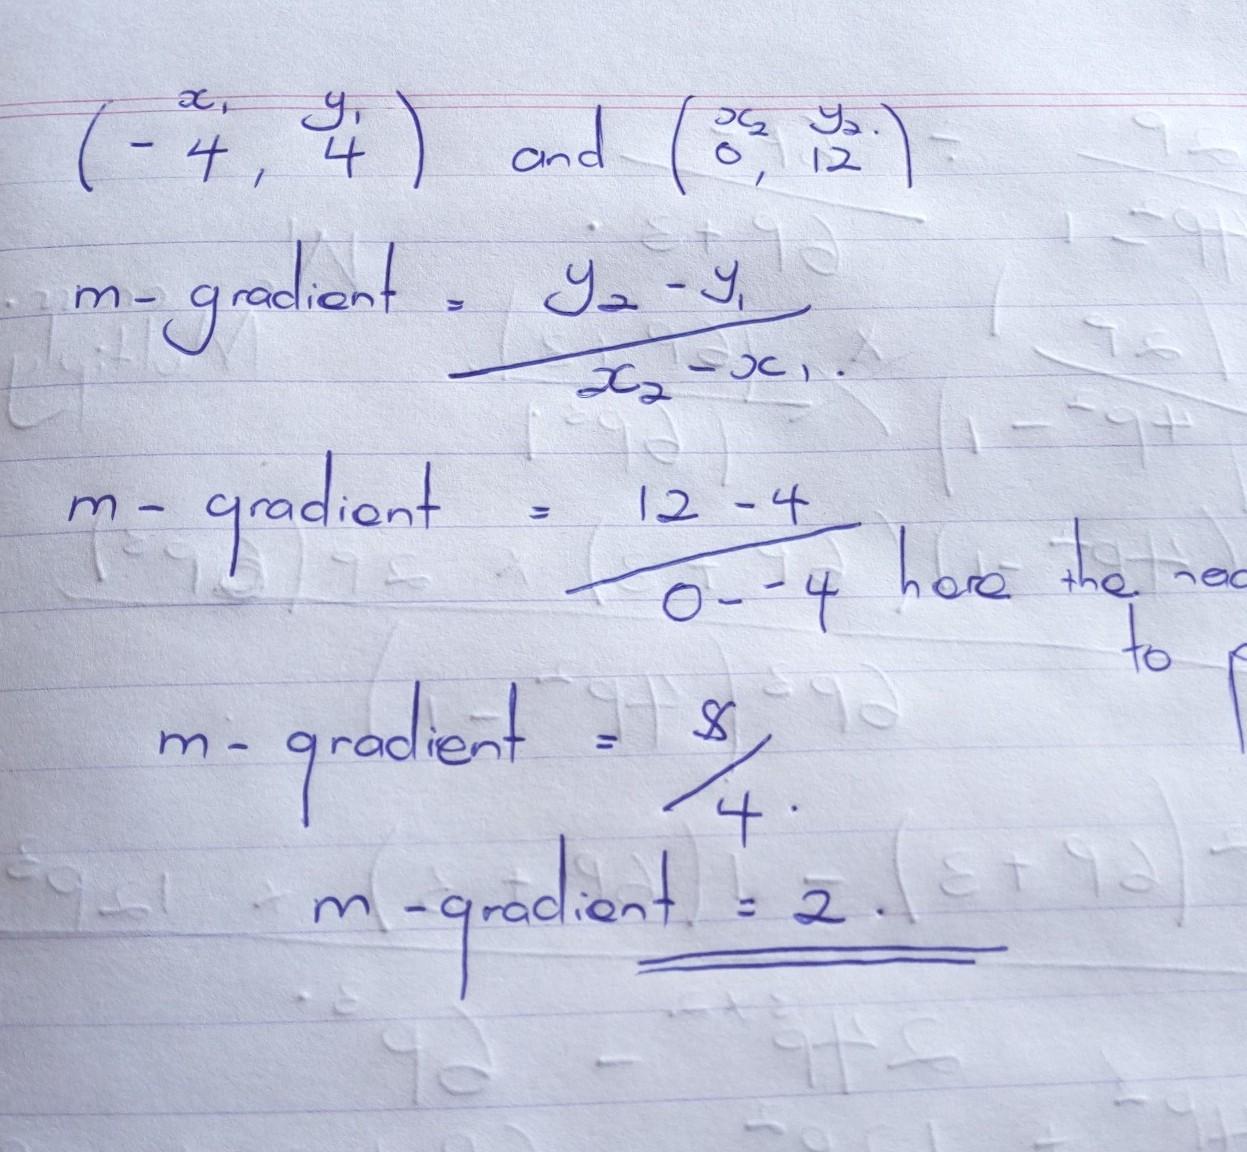 x₁ y₁ x₂ y₂.
(-4, 4) and (0, 12)
m-gradient = y₂ - y₁
x₂ - x₁.
m- gradient = 12 - 4
0 - -4 here the
to
m- gradient = 8
4.
m-gradient = 2.